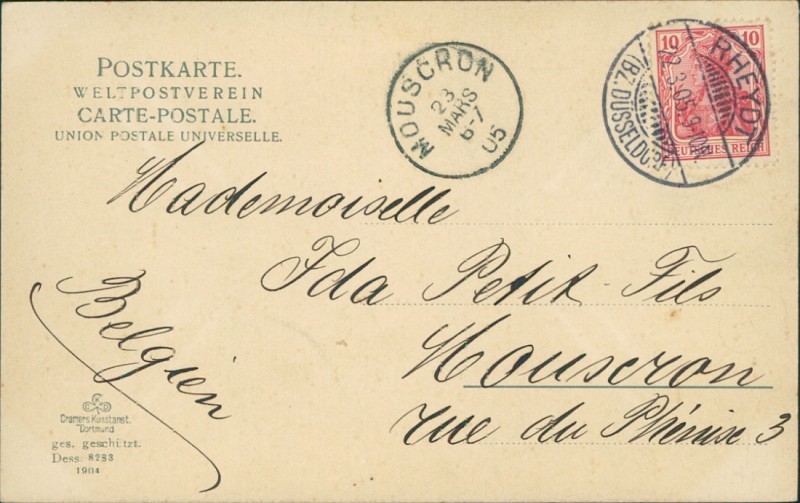 POSTKARTE.
WELTPOSTVEREIN
CARTE-POSTALE.
UNION POSTALE UNIVERSELLE.
MOUSCRON
23
MARS
6-7
05
10 10
DEUTSCHES REICH
RHEYDT
22.3.05. 9-10
(BZ. DÜSSELDORF)
Mademoiselle
Ida Petit-Fils
Mouscron
rue du Phénix 3
Belgien
Cramers Kunstanst.
Dortmund
ges. geschützt.
Dess. 8283
1904